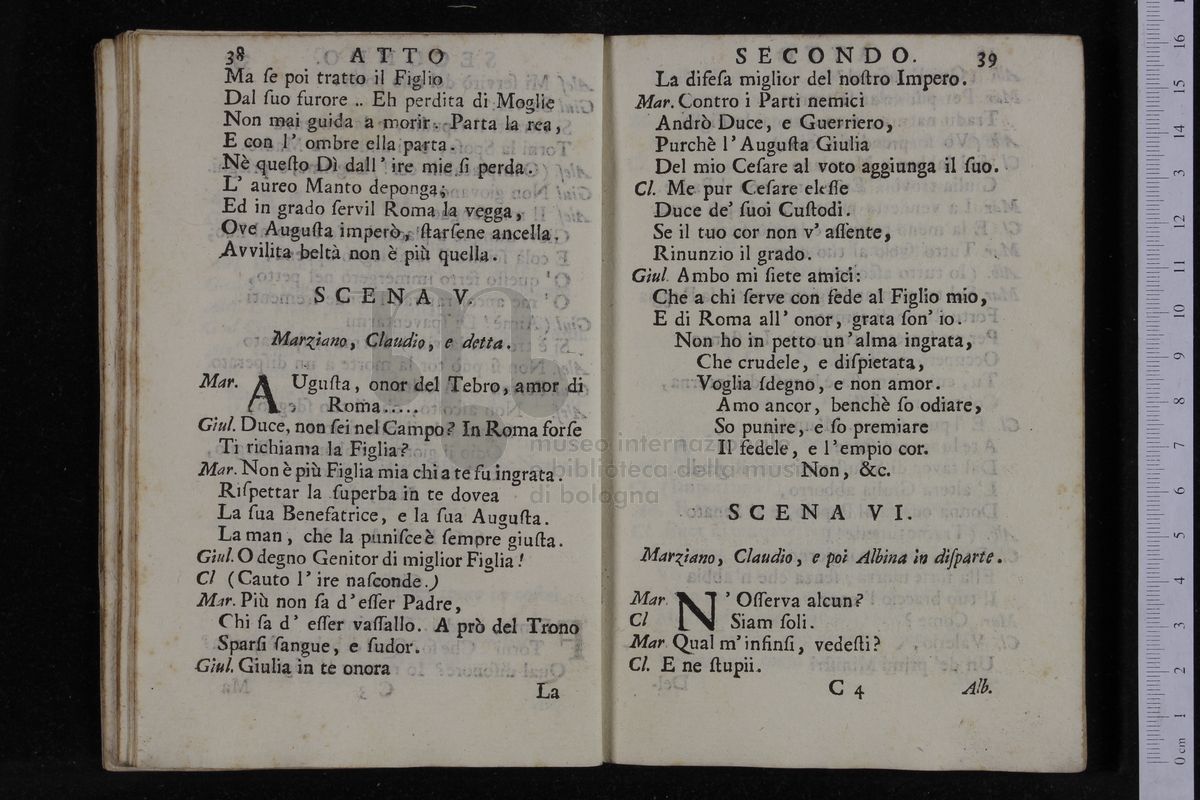 38 ATTO
Ma ſe poi tratto il Figlio
Dal ſuo furore .. Eh perdita di Moglie
Non mai guida a morir. Parta la rea,
E con l' ombre ella parta.
Nè queſto Dì dall' ire mie ſi perda.
L' aureo Manto deponga;
Ed in grado ſervil Roma la vegga,
Ove Auguſta imperò, ſtarſene ancella.
Avvilita beltà non è più quella.
SCENA V.
Marziano, Claudio, e detta.
Mar. AUguſta, onor del Tebro, amor di
Roma.....
Giul. Duce, non ſei nel Campo? In Roma forſe
Ti richiama la Figlia?
Mar. Non è più Figlia mia chi a te fu ingrata.
Riſpettar la ſuperba in te dovea
La ſua Benefatrice, e la ſua Auguſta.
La man, che la puniſce è ſempre giuſta.
Giul. O degno Genitor di miglior Figlia!
Cl (Cauto l' ire naſconde.)
Mar. Più non ſa d'eſſer Padre,
Chi ſa d' eſſer vaſſallo. A prò del Trono
Sparſi ſangue, e ſudor.
Giul. Giulia in te onora
La
SECONDO. 39
La difeſa miglior del noſtro Impero.
Mar. Contro i Parti nemici
Andrò Duce, e Guerriero,
Purchè l'Auguſta Giulia
Del mio Ceſare al voto aggiunga il ſuo.
Cl. Me pur Ceſare eleſſe
Duce de' ſuoi Cuſtodi.
Se il tuo cor non v' aſſente,
Rinunzio il grado.
Giul. Ambo mi ſiete amici:
Che a chi ſerve con fede al Figlio mio,
E di Roma all' onor, grata ſon' io.
Non ho in petto un'alma ingrata,
Che crudele, e diſpietata,
Voglia ſdegno, e non amor.
Amo ancor, benchè ſo odiare,
So punire, e ſo premiare
Il fedele, e l'empio cor.
Non, &c.
SCENA VI.
Marziano, Claudio, e poi Albina in diſparte.
Mar. N'Oſſerva alcun?
Cl Siam ſoli.
Mar Qual m'infinſi, vedeſti?
Cl. E ne ſtupii.
C 4 Alb.
museo internazionale
e biblioteca della musica
di bologna
0 cm 1 2 3 4 5 6 7 8 9 10 11 12 13 14 15 16